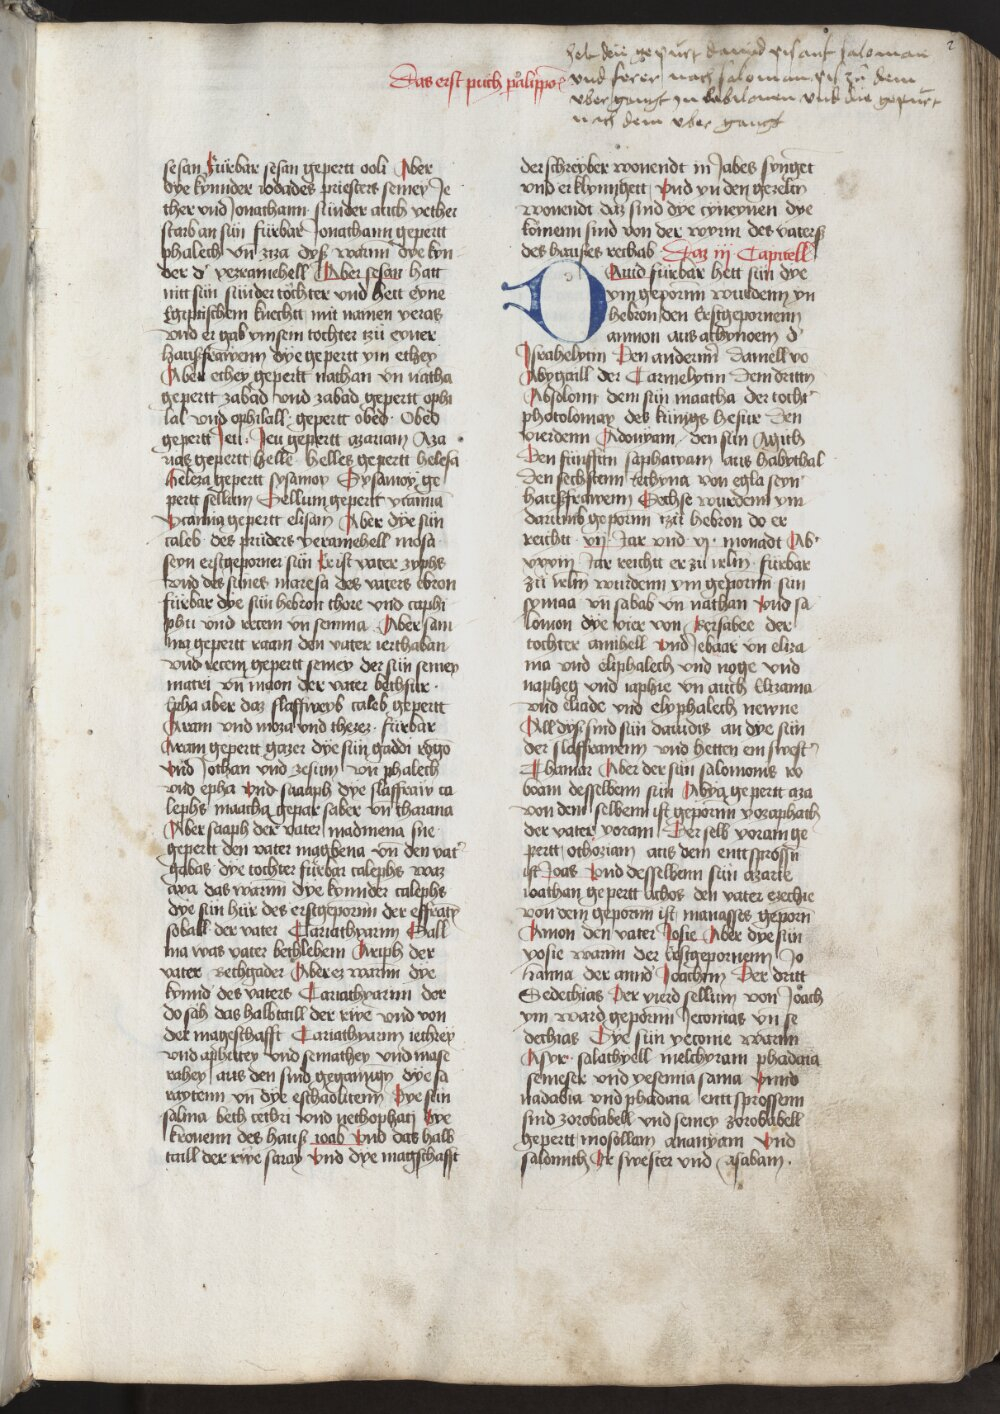 2
heb die gepurt dauid vis auf saloman
vnd ferer nach saloman vis zu dem
vbergangt yn babilonen vnd die gepurt
nach dem vber gangt
Das erst puch paralippo
sesan Fürbar sesan gepertt ooli Aber
dye kynnder iodades priesters semey Je
ther vnd Jonathann sunder auch yether
starb an sün fürbar Jonathann gepertt
phalech vn ziza dyß warnn dye kyn
der d' yeramehell Aber sesan hatt
nitt sün sünder töchter vnd hett eyne
Egiptischem knecht mit namen yeras
vnd er gab ymsein tochter tzü eyner
haußfrawenn dye gepertt ym ethey
Aber ethey gepertt nathan vn natha
gepertt zabad vnd zabad gepertt ophi
lal vnd ophilall gepertt obed Obed
gepertt Jeu Jeu gepertt azariam Aza
rias gepertt helle helles gepertt helesa
helesa gepertt sysamoy Sysamoy ge
pertt sellum Sellum gepertt ycamia
ycamia gepertt elisam Aber dye sün
caleb des prüders yeramehell mosa
seyn erstgeporner sün Er ist vater zyphs
vnd des sunes maresa des vaters ebron
fürbar dye sün hebron thore vnd taphi
phu vnd recem vn semma Aber sam
ma gepertt raam den vater ierthaban
vnd recem gepertt semey der sün semey
matri vn maon der vater bethsur
Epha aber daz slaffweyb caleb gepertt
Aram vnd moza vnd therez fürbar
Aram gepertt gazer dye sün gaddi rogo
vnd Jothan vnd zesum vn phalech
vnd epha vnd saaaph dye slaffraw ca
lephs maacha gepar saber vn tharana
Aber saaph der vater madmena sue
gepertt den vater magbena vn den vat'
gabas dye tochter fürbar calephs waz
axa das warnn dye kynnder calephs
dye sün hür des erstgepornn der effraty
soball der vater Cariathyarim Sall
ma was vater bethlehem Araph der
vater bethgader Aber ez warnn dye
kynnd' des vaters Cariathyarim der
do sah das halbtaill der rwe vnd von
der mageschafft Cariathyarim iethrey
vnd aphutey vnd semathey vnd mase
rahey aus den sind gegangen dye sa
raytenn vn dye eschaolitenn Dye sün
salma beth cethri vnd nethophati Dye
kronenn des hauß ioab Vnd das halb
taill der rwe saray Vnd dye magschafft
der schreyber wonendt in Jabes synget
vnd erklynngett Vnd yn den gezelten
wonendt daz sind dye cyneynen dye
komenn sind von der wyrm des vaterß
des haußes rechab Daz iij Capitell
Dauid fürbar hett sün dye
ym gepornn wurdenn yn
hebron den Erstgepornenn
amnon aus athynoem d'
Israhelytin Den anderun daniell vo
Abygaill der Carmelytin Dem drittn
Absolonn dem sün maatha der tocht'
photolomay des künigs hesür Den
vierdenn Adonyam den sün Agith
Den fünfftn saphatyam aus habythal
den sechstenn iethyna von egla seyn'
haußfrawenn Sechse wurdenn ym
darumb gepornn tzü hebron do er
reichtt vij Jar vnd vj monadt Ab'
xxxiij Jar reichtt er zü irlm fürbar
zü irlm wurdenn ym gepornn sun
symaa vn sabab vn nathan vnd sa
lomon dye vier von Bersabee der
tochter amihell vnd Jebaar vn eliza
ma vnd eliphalech vnd noge vnd
napheg vnd iaphie vn auch Elizama
vnd eliade vnd elyphalech newne
All dyß sind sün dauidis an dye sün
der slaffrawenn vnd hetten ein swest'
Thamar Aber der sün salomonis ro
boam desselbenn sün Abya gepertt aza
von dem selbenn ist gepornn yozaphath
der vater yoram Der selb yoram ge
pertt othoziam aus dem entt sprossn
ist Joas Vnd desselbenn sün azarie
ioathan gepertt achos den vater ezechie
von dem gepornn ist manasses geporn
Amon den vater Josie Aber dye sün
yosie warnn der Erstgepornenn Jo
hanna der annd' Joachim Der dritt
Sedechias Der vierd sellum von Joach
ym ward gepornn Jeconias vn se
dechias Dye sün yeconie warnn
Asyr salathyell melchyram phadaia
semeser vnd yesenna sama Vnnd
nadabia vnd phadaia entt sprossenn
sind zorobabell vnd semey zorobabell
gepertt mosollam ananyam Vnd
salomith Ir swester vnd asabam